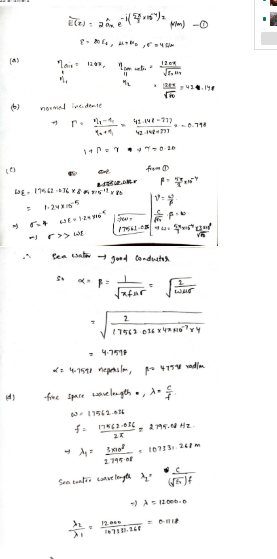 Ẽ(z) = 2 âₓ e^-j(5π/3 ×10⁻⁴)z (V/m) — ①
ε = 80 ε₀, μ = μ₀, σ = 4 S/m
(a) η air = 120π, η sea water = 120π/√εr
η₁ η₂ = 120π/√80 = 42.148
(b) normal incidence
→ Γ = η₂ - η₁ / η₂ + η₁ = 42.148 - 377 / 42.148 + 377 = -0.798
1 + Γ = τ → τ = 0.20
(c) from ①
β = 5π/3 ×10⁻⁴
ωε = 17562.036 × 8.85×10⁻¹² × 80
= 1.24×10⁻⁵
⇒ σ = 4 ωε = 1.24×10⁻⁵
→ σ >> ωε
17562.036
∴ Sea water → good conductor
So α = β = 1/√πfμσ = √2/ωμσ
= √2 / 17562.036 × 4π×10⁻⁷ × 4
= 4.7598
α = 4.7598 nepers/m, β = 4.7598 rad/m
(d) free space wavelength, λ = c/f
ω = 17562.036
f = 17562.036 / 2π = 2795.08 Hz
→ λ₁ = 3×10⁸ / 2795.08 = 107331.268 m
Sea water wavelength λ₂ = c / (√εr) f
→ λ = 12000.0
λ₂/λ₁ = 12000 / 107331.268 = 0.1118